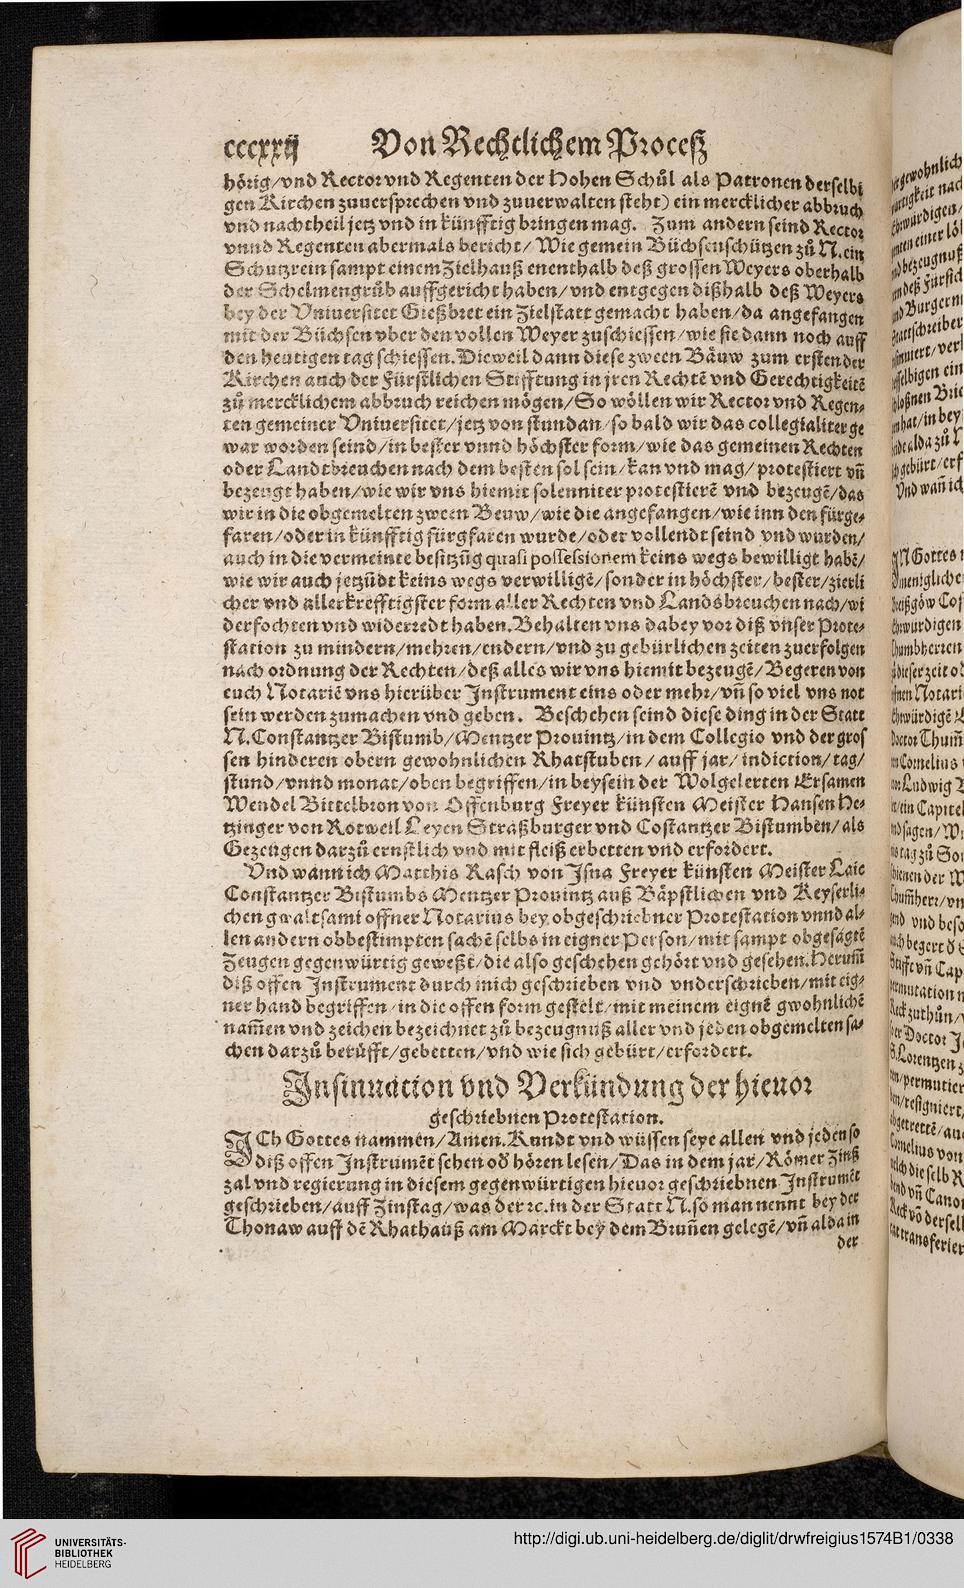 cccxxij Von Rechtlichem Proceß
hörig/vnd Rector vnd Regenten der Hohen Schůl als Patronen derselbi
gen Kirchen zuuersprechen vnd zuuerwalten steht) ein mercklicher abbruch
vnd nachtheil jetz vnd in künfftig bringen mag. Zum andern seind Rector
vnnd Regenten abermals bericht/ Wie gemein Büchsenschützen zů N. ein
Schutzrein sampt einem Zielhauß enenthalb deß grossen Weyers oberhalb
der Schelmengrůb auffgericht haben/vnd entgegen dißhalb deß Weyers
bey der Vniuersitet Gießbret ein Zielstatt gemacht haben/da angefangen
mit der Büchsen vber den vollen Weyer zuschiessen/wie sie dann noch auff
den heutigen tag schiessen. Dieweil dann diese zween Bäuw zum ersten der
Kirchen auch der Fürstlichen Stifftung in jren Rechtē vnd Gerechtigkeitē
zů mercklichem abbruch reichen mögen/So wöllen wir Rector vnd Regen-
ten gemeiner Vniuersitet/jetz von stundan/so bald wir das collegialiter ge
war worden seind/in bester vnnd höchster form/wie das gemeinen Rechten
oder Landtbreuchen nach dem besten sol sein/kan vnd mag/protestiert vñ
bezeugt haben/wie wir vns hiemit solenniter protestierē vnd bezeugē/das
wir in die obgemelten zween Beuw/wie die angefangen/wie inn den fürge-
faren/oder in künfftig fürgfaren wurde/oder vollendt seind vnd wurden/
auch in die vermeinte besitzūg quasi possessionem keins wegs bewilligt habē/
wie wir auch jetzūdt keins wegs verwilligē/sonder in höchster/bester/zierli
cher vnd allerkrefftigster form aller Rechten vnd Landsbreuchen nach/wi
derfochten vnd widerredt haben. Behalten vns dabey vor diß vnser Prote-
station zu mindern/mehren/endern/vnd zu gebürlichen zeiten zuerfolgen
nach ordnung der Rechten/deß alles wir vns hiemit bezeugē/Begeren von
euch Notariē vns hierüber Instrument eins oder mehr/vñ so viel vns not
sein werden zumachen vnd geben. Beschehen seind diese ding in der Statt
N. Constantzer Bistumb/Mentzer Prouintz/in dem Collegio vnd der gros
sen hinderen obern gewohnlichen Rhatstuben/ auff jar/ indiction/ tag/
stund/vnnd monat/oben begriffen/in beysein der Wolgelerten Ersamen
Wendel Bittelbron von Offenburg Freyer künsten Meister Hansen He-
tzinger von Rotweil Leyen Straßburger vnd Costantzer Bistumben/als
Gezeugen darzů ernstlich vnd mit fleiß erbetten vnd erfordert.
Vnd wann ich Matthis Rasch von Isna Freyer künsten Meister Laie
Constantzer Bistumbs Mentzer Prouintz auß Bäpstlichen vnd Keyserli-
chen gwaltsami offner Notarius bey obgeschriebner Protestation vnnd al-
len andern obbestimpten sachē selbs in eigner Person/mit sampt obgesagtē
Zeugen gegenwürtig geweßt/die also geschehen gehört vnd gesehen. Herum̄
diß offen Instrument durch mich geschrieben vnd vnderschrieben/mit eig-
ner hand begriffen/in die offen form gestelt/mit meinem eignē gwohnlichē
nam̄en vnd zeichen bezeichnet zů bezeugnuß aller vnd jeden obgemelten sa-
chen darzů berůfft/gebetten/vnd wie sich gebürt/erfordert.
Insinuation vnd Verkündung der hieuor
geschriebnen Protestation.
ICh Gottes nammen/Amen. Kundt vnd wüssen seye allen vnd jeden so
diß offen Instrumēt sehen od' hören lesen/Das in dem jar/Römer Zinß
zal vnd regierung in diesem gegenwürtigen hieuor geschriebnen Instrumēt
geschrieben/auff Zinstag/was der ꝛc. in der Statt N. so man nennt bey der
Thonaw auff dē Rhathauß am Marckt bey dem Brun̄en gelegē/vñ alda in
der
UNIVERSITÄTS-
BIBLIOTHEK
HEIDELBERG
http://digi.ub.uni-heidelberg.de/diglit/drwfreigius1574B1/0338